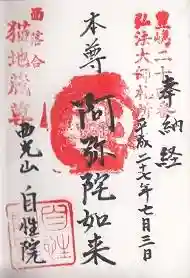 奉納経
豊嶋二十番
弘法大師札所
平成二七年七月三日
本尊
阿弥陀如来
西落合
猫地蔵尊
西光山
自性院
自性